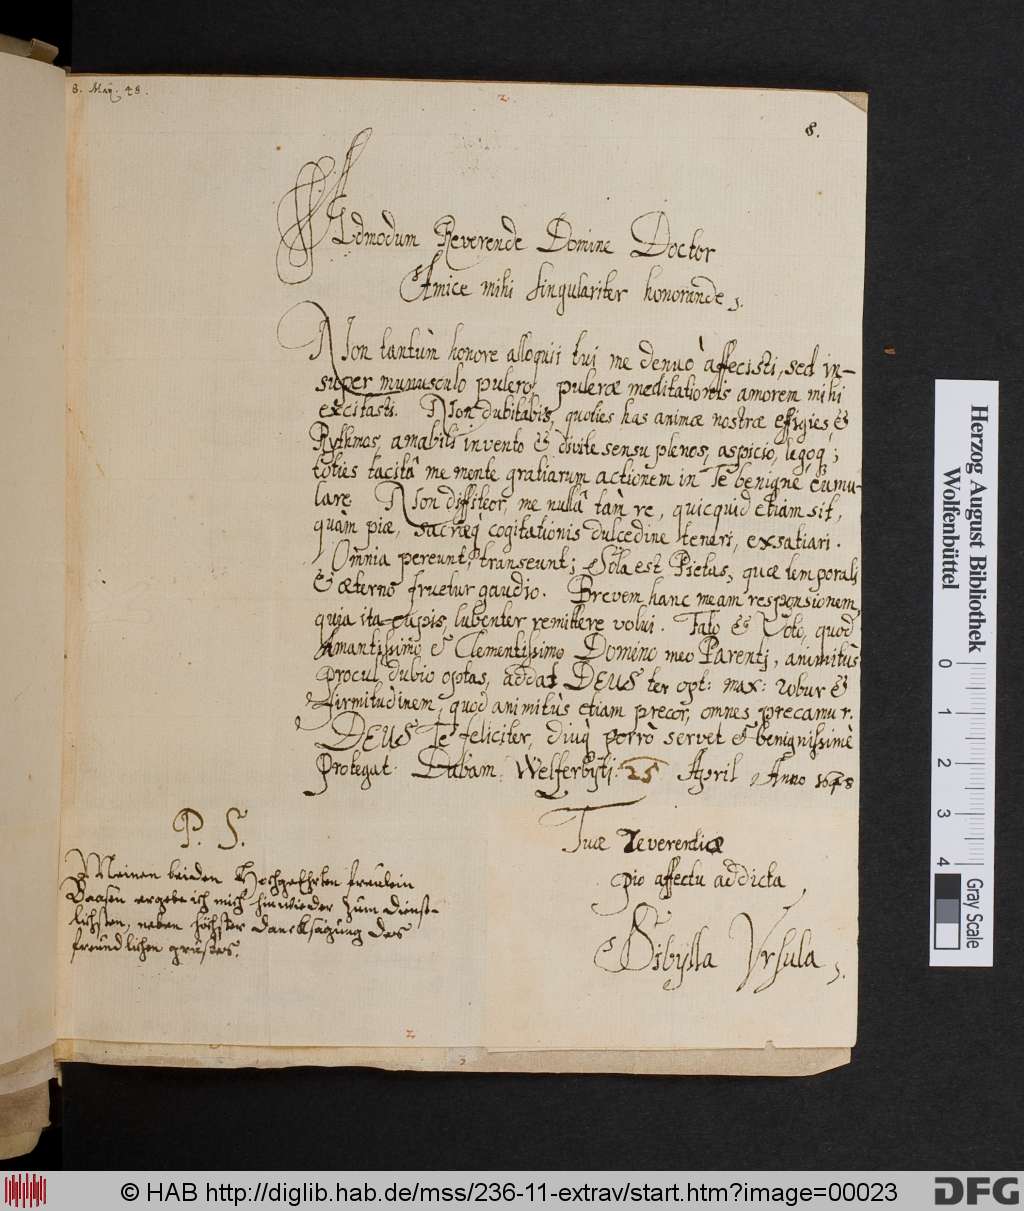 8. Maij. 48.
2.
8.
Admodum Reverende Domine Doctor
Amice mihi singulariter honorande,.
Non tantùm honore alloquii tui me denuò affecisti, sed in-
super munusculo pulcro, pulcræ meditationis amorem mihi
excitasti. Non dubitabis, quoties has animæ nostræ effigies, &
Rythmos, amabili invento & divite sensu plenos, aspicio, legoq;
toties tacitâ me mente gratiarum actionem in Te benignè cumu-
lare. Non diffiteor, me nullâ tam re, quicquid etiam sit,
quàm piæ, sacræq; cogitationis dulcedine teneri, exsatiari.
Omnia pereunt, transeunt; Sola est Pietas, quæ temporali
& æterno fruetur gaudio. Brevem hanc meam responsionem,
quia ita cupis, lubenter remittere volui. Fato & Voto, quod
Amantissimo & Clementissimo Domino meo Parenti, animitùs
procul dubio optas, addat DEUS ter opt: max: robur &
firmitudinem, quod animitùs etiam precor, omnes precamur.
DEUS Te feliciter, diuq; porrò servet & benignissimè
Protegat. Dabam Welferbyti 25 April Anno 1648
Tuæ Reverentiæ
pio affectu addicta,
Sibÿlla Ursula,.
P. S.
Meinen beiden Hochgeehrten freulein
Baasen ergebe ich mich hinwieder zum dienst-
lichsten, neben höchster dancksagung des
freundlichen grußes.
2
Herzog August Bibliothek
Wolfenbüttel
0 1 2 3 4
Gray Scale
© HAB http://diglib.hab.de/mss/236-11-extrav/start.htm?image=00023
DFG